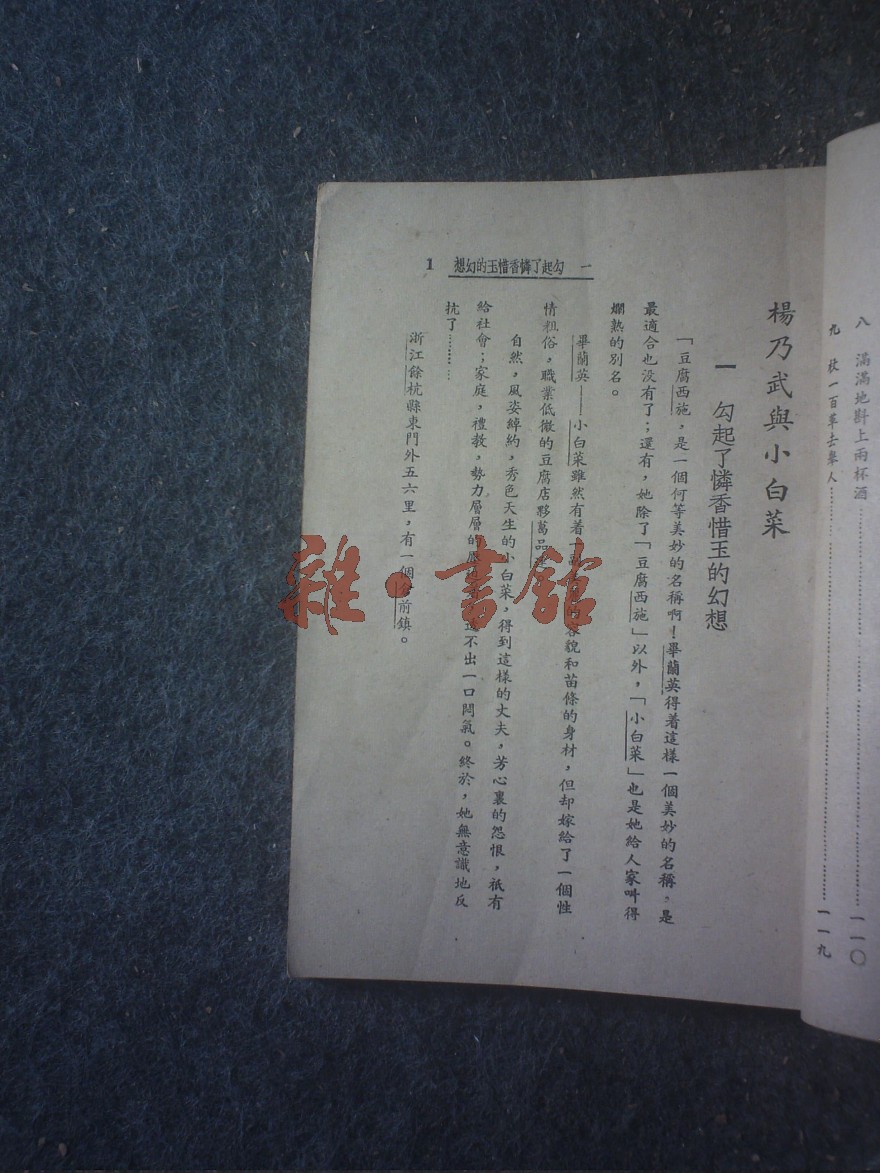 八 滿滿地斟上兩杯酒……………………一一〇
九 杖一百革去舉人……………………一一九
楊乃武與小白菜
一 勾起了憐香惜玉的幻想
「豆腐西施」,是一個何等美妙的名稱啊!畢蘭英得着這樣一個美妙的名稱,是
最適合也沒有了;還有,她除了「豆腐西施」以外,「小白菜」也是她給人家叫得
爛熟的別名。
畢蘭英——小白菜雖然有着一副容貌和苗條的身材,但却嫁給了一個性
情粗俗,職業低微的豆腐店夥葛品
自然,風姿綽約,秀色天生的小白菜,得到這樣的丈夫,芳心裏的怨恨,祇有
給社會;家庭,禮教,勢力層層的不出一口悶氣。終於,她無意識地反
抗了………
浙江餘杭縣東門外五六里,有一個前鎮。
一 勾起了憐香惜玉的幻想 1
雜·書館